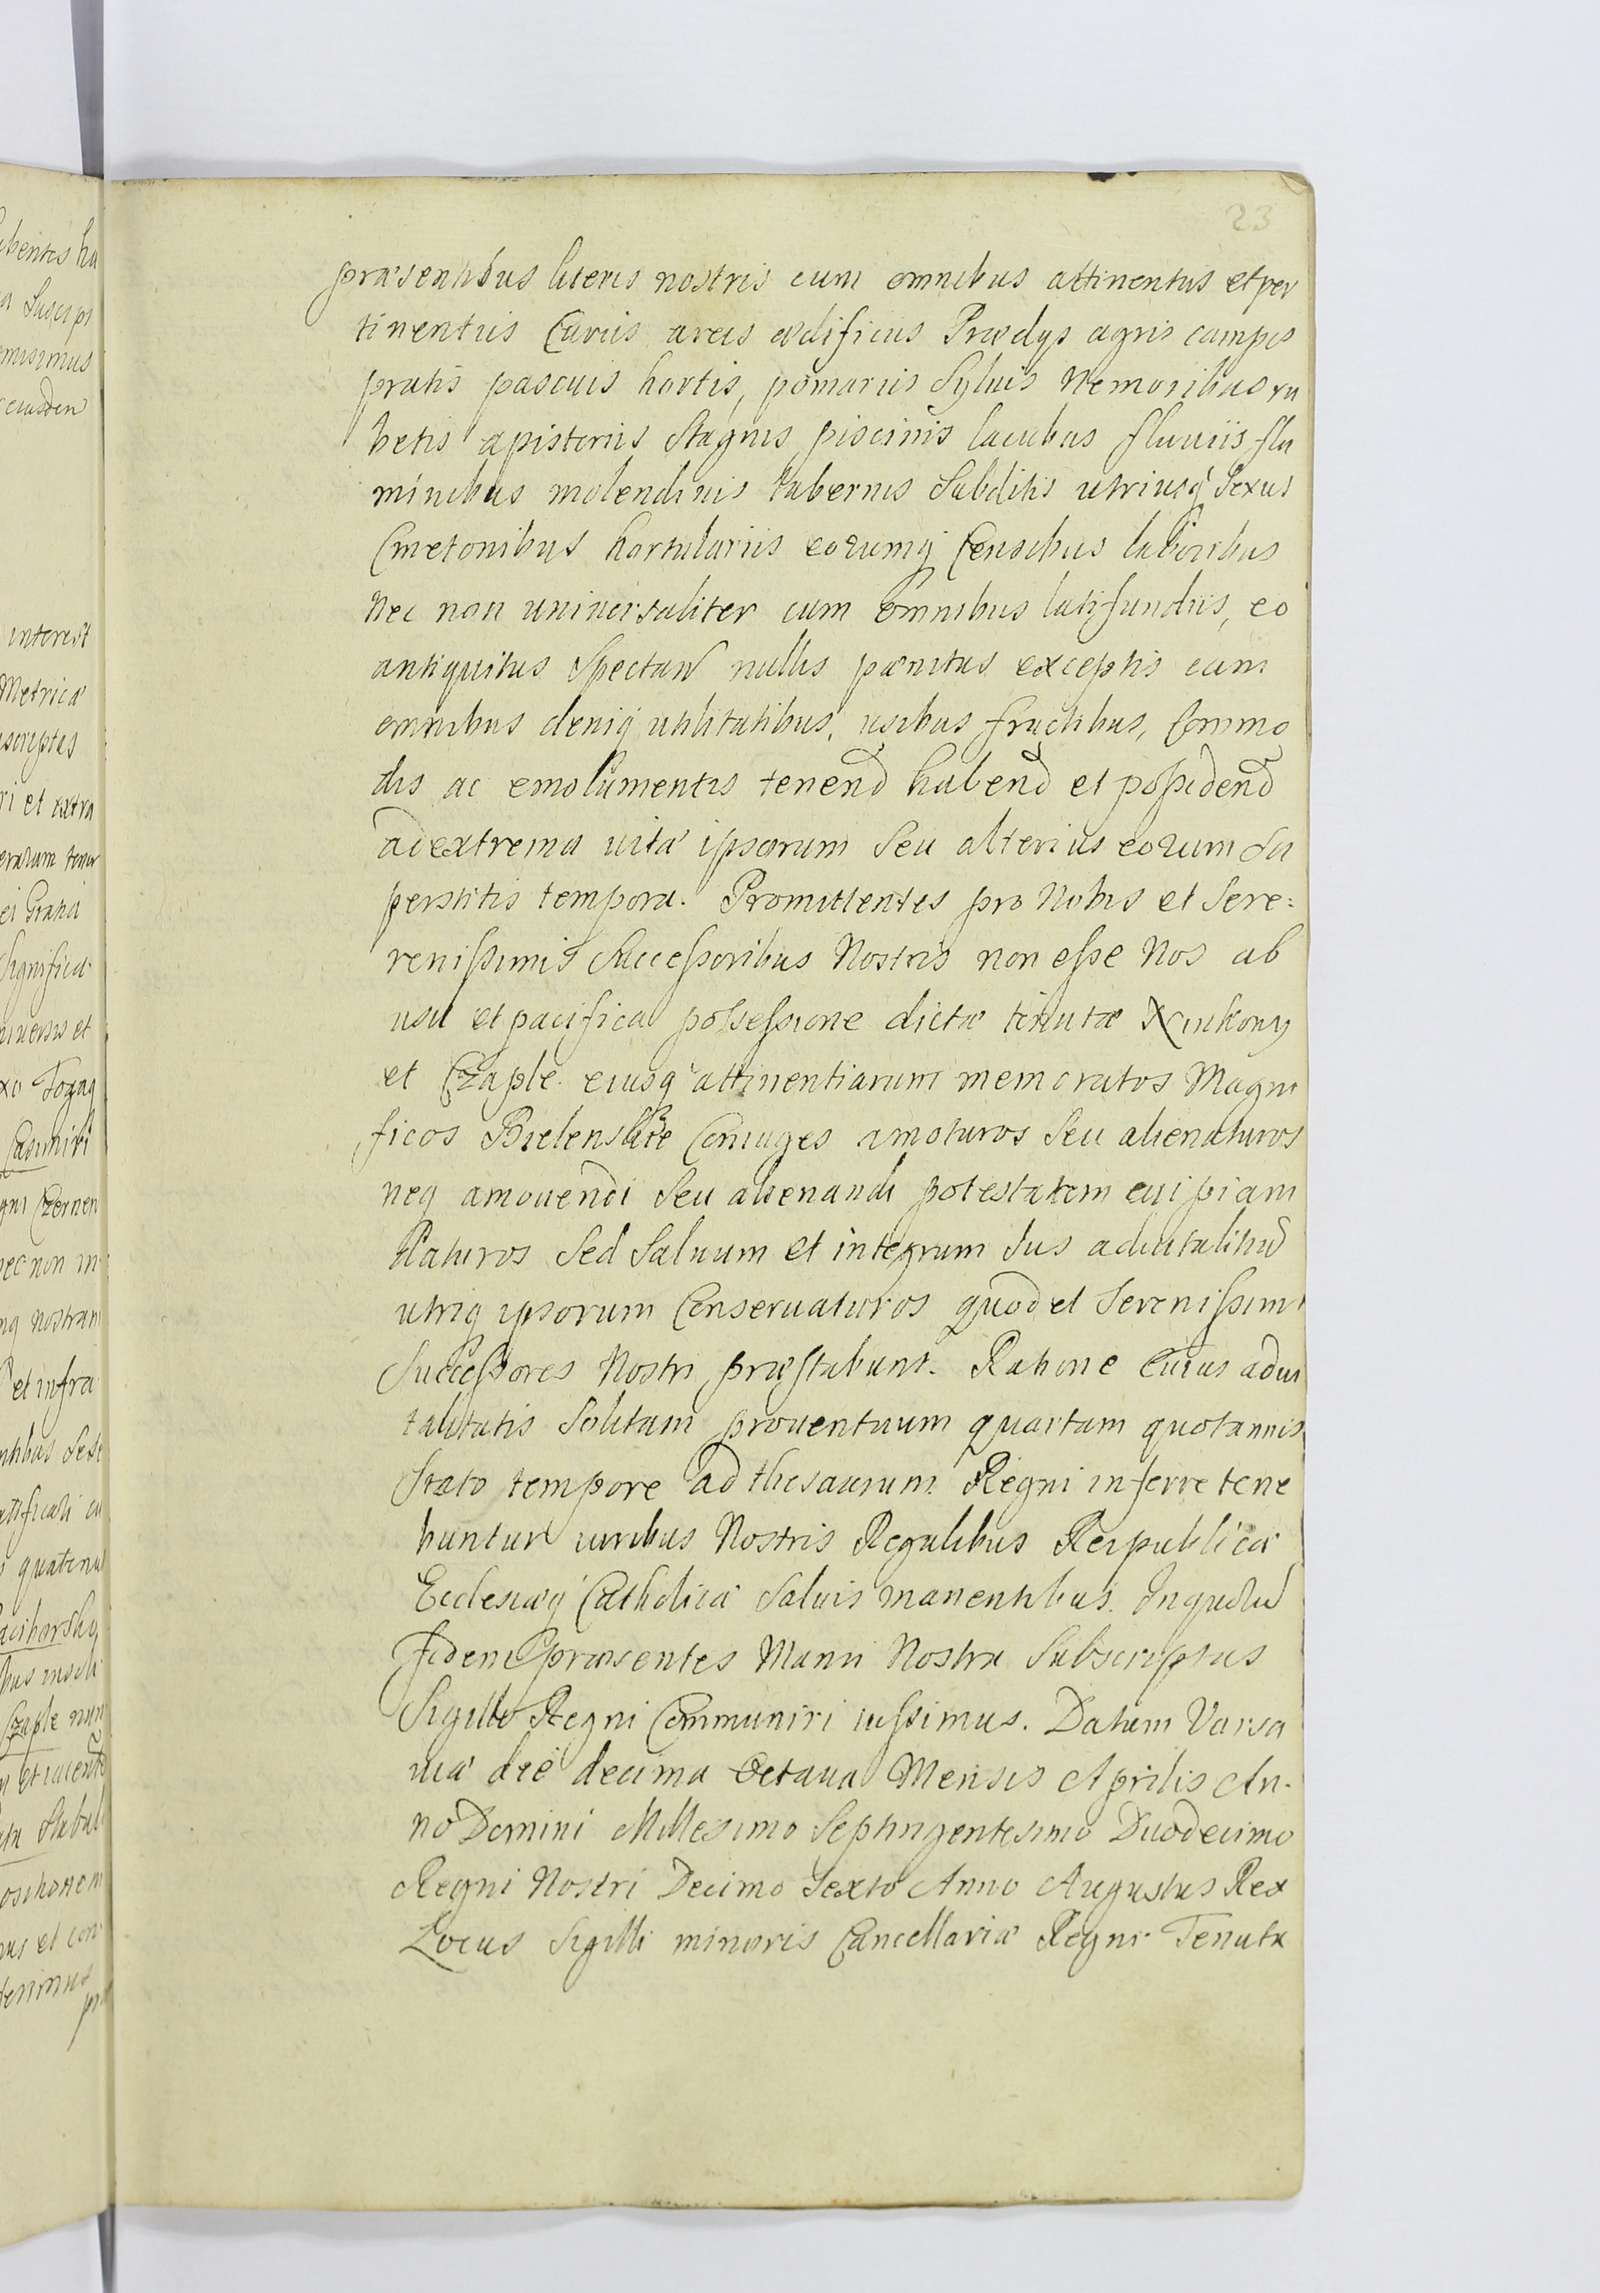 23
præsentibus literis nostris cum omnibus attinentiis et per
tinentiis Curiis areis ædificiis Prædys agris campis
pratis pascuis hortis, pomariis Syluis Nemoribus ru
betis apisteriis Stagnis piscinis lacubus fluuiis flu
minibus molendinis tabernis Subditis utriusq Sexus
Cmetonibus hortulariis eorumq Censibus laboribus
Nec non uniuersaliter cum omnibus latifundiis, eo
antiquitus Spectan nullis pænitus exceptis cum
omnibus deniq utilitatibus, usibus fructibus, Commo
dis ac emolumentis tenend habend et possidend
ad extrema uitæ ipsorum Seu alterius eorum Su
perstitis tempora. Promittentes pro Nobis et Sere:
renissimis Successoribus Nostris non esse Nos ab
usu et pacifica possessione dictæ tenutæ Xiukony
et Czaple eiusq attinentiarum memoratos Magni
ficos Bielenskie Coniuges amoturos Seu alienaturos
neq amouendi Seu alienandi potestatem cuipiam
Daturos Sed Saluum et integrum Jus aduitalitiu
utriq ipsorum Conseruaturos quod et Serenissimi
Successores Nostri præstabunt. Ratione Cuius adui
talitatis Solitam prouentuum quartam quotannis
Stato tempore ad thesaurum Regni inferre tene
buntur iuribus Nostris Regalibus Reipublicæ
Ecclesiæq Catholicæ Saluis manentibus. In quoru
fidem præsentes Manu Nostra Subscriptas
Sigillo Regni Communiri iussimus. Datum Varsa
uiæ die decima Octaua Mensis Aprilis An-
no Domini Millesimo Septingentesimo Duodecimo
Regni Nostri Decimo Sexto Anno Augustus Rex
Locus Sigilli minoris Cancellariæ Regni Tenuta